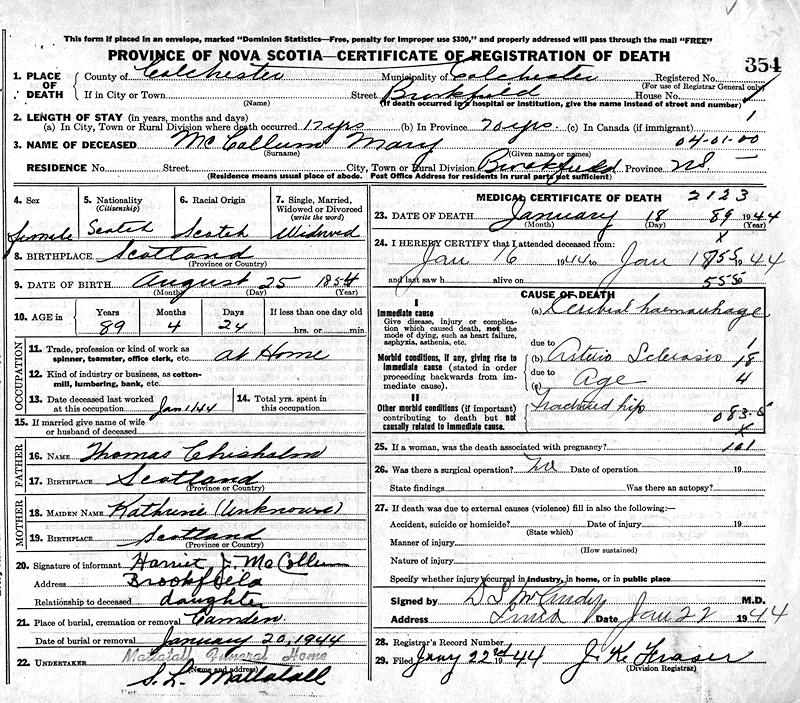 This form if placed in an envelope, marked "Dominion Statistics—Free, penalty for improper use $300," and properly addressed will pass through the mail "FREE"
PROVINCE OF NOVA SCOTIA—CERTIFICATE OF REGISTRATION OF DEATH
354
1. PLACE OF DEATH
County of Colchester Municipality of Colchester Registered No.
(For use of Registrar General only)
If in City or Town Street Brookfield House No.
(Name) (If death occurred in a hospital or institution, give the name instead of street and number)
2. LENGTH OF STAY (in years, months and days)
(a) In City, Town or Rural Division where death occurred 17 yrs (b) In Province 70 yrs. (c) In Canada (if immigrant) 1
3. NAME OF DECEASED McCollum Mary 04-01-00
(Surname) (Given name or names)
RESIDENCE No. Street City, Town or Rural Division Brookfield Province NS
(Residence means usual place of abode. Post Office Address for residents in rural parts not sufficient)
4. Sex
female
5. Nationality
(Citizenship)
Scotch
6. Racial Origin
Scotch
7. Single, Married, Widowed or Divorced
(write the word)
Widowed
8. BIRTHPLACE Scotland
(Province or Country)
9. DATE OF BIRTH August 25 1854
(Month) (Day) (Year)
10. AGE in Years Months Days If less than one day old
89 4 24 hrs. or min.
OCCUPATION
11. Trade, profession or kind of work as spinner, teamster, office clerk, etc. at Home
12. Kind of industry or business, as cotton-mill, lumbering, bank, etc.
13. Date deceased last worked at this occupation Jan 1/44
14. Total yrs. spent in this occupation
15. If married give name of wife or husband of deceased
FATHER
16. NAME Thomas Chisholm
17. BIRTHPLACE Scotland
(Province or Country)
MOTHER
18. MAIDEN NAME Kathrine (Unknown)
19. BIRTHPLACE Scotland
(Province or Country)
20. Signature of informant Harriet J. McCollum
Address Brookfield
Relationship to deceased daughter
21. Place of burial, cremation or removal Camden
Date of burial or removal January 20, 1944
22. UNDERTAKER Mattatall Funeral Home
(Name and address)
S. L. Mattatall
MEDICAL CERTIFICATE OF DEATH 2123
23. DATE OF DEATH January 18 89 1944
(Month) (Day) (Year)
24. I HEREBY CERTIFY that I attended deceased from:
Jan 16 1944 to Jan 18 1944
and last saw h alive on
CAUSE OF DEATH
I
Immediate cause
Give disease, injury or complication which caused death, not the mode of dying, such as heart failure, asphyxia, asthenia, etc.
(a) Cerebral haemorrhage
due to 1
Morbid conditions, if any, giving rise to immediate cause (stated in order proceeding backwards from immediate cause).
(b) Arterio Sclerosis 18
due to 4
(c) Age
II
Other morbid conditions (if important) contributing to death but not causally related to immediate cause.
fractured hip
25. If a woman, was the death associated with pregnancy? 101
26. Was there a surgical operation? no Date of operation 19
State findings Was there an autopsy?
27. If death was due to external causes (violence) fill in also the following:—
Accident, suicide or homicide? Date of injury 19
(State which)
Manner of injury
(How sustained)
Nature of injury
Specify whether injury occurred in industry, in home, or in public place
Signed by M.D.
Address Truro Date Jan 22 1944
28. Registrar's Record Number
29. Filed Jany 22nd 1944 J. K. Fraser
(Division Registrar)